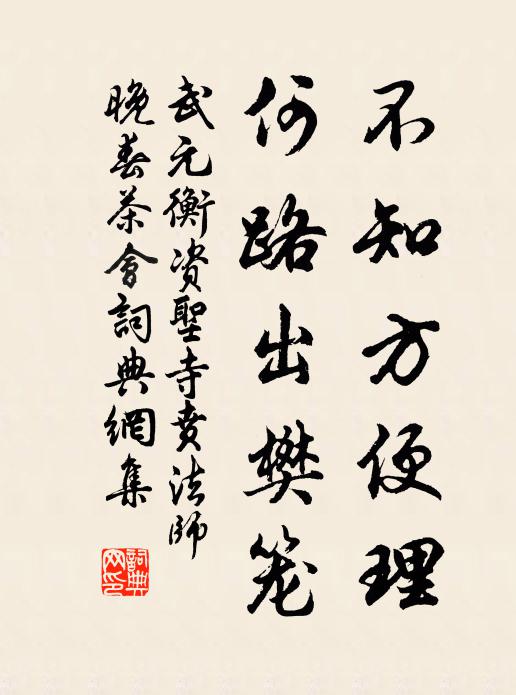 不知方便理
何路出樊笼
武元衡资聖寺贲法師
晚春茶會詞典網集
詞典网印